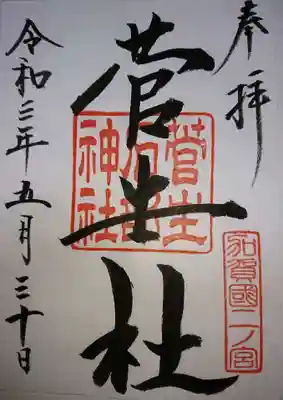 奉拝
菅生社
菅生
石部
神社
加賀國二ノ宮
令和三年五月三十日